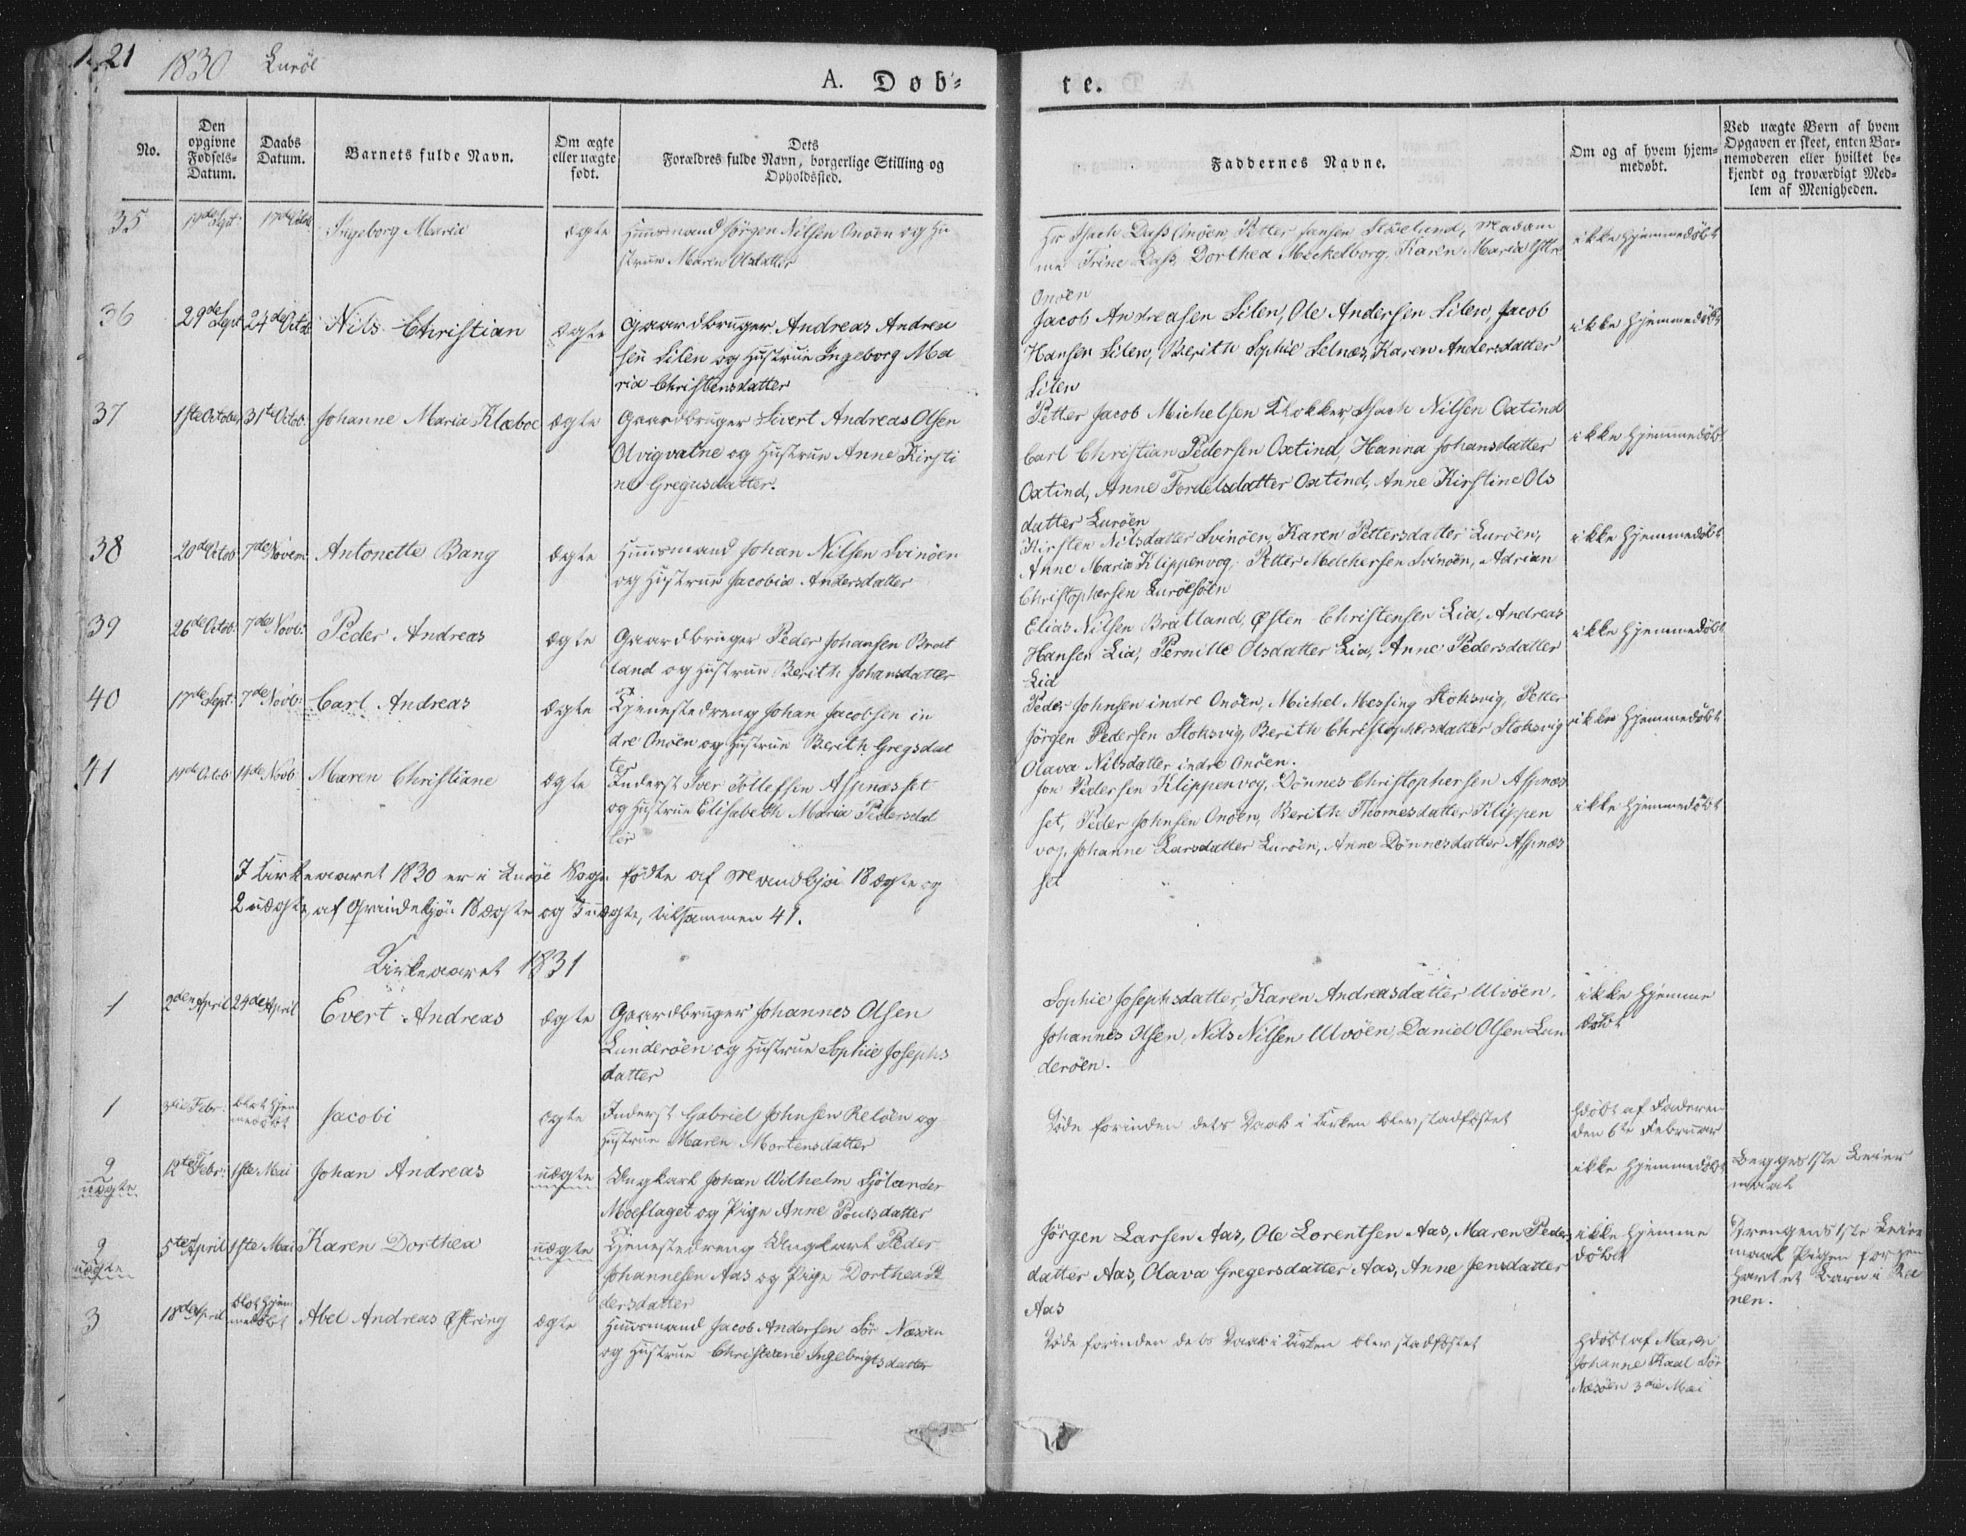 21
1830 Luröe
A. Døb-
te.
No.
Den opgivne Fødsels-Datum.
Daabs Datum.
Barnets fulde Navn.
Om ægte eller uægte født.
Dets Forældres fulde Navn, borgerlige Stilling og Opholdssted.
Faddernes Navne.
Om og af hvem hjem-
medøbt.
Ved uægte Børn af hvem
Opgaven er skeet, enten Bar-
nemoderen eller hvilket be-
kjendt og troværdigt Med-
lem af Menigheden.
35 Ingeborg Maria ægte Huusmand Jörgen Nilsen Onöen og Hu
strue Maren Olsdatter
Onöen
ikke hjemmedöbt
36 29de Sept 24de Octob Nils Christian ægte Gaardbruger Andreas Andrea
sen Silen og Hustrue Ingeborg Ma
ria Christensdatter
Jacob Andreasen Silen, Ole Andersen Silen, Jacob
Hansen Silen, Berith Sophie Selnæs, Karen Andersdatter
Silen
ikke hjemmedöbt
37 1ste October 31te Octob. Johanne Maria Klæboe ægte Gaardbruger Sivert Andreas Olsen
Olvigvatne og Hustrue Anne Kirsti
ne Gregusdatter.
Petter Jacob Michelsen Klokker, Isach Nilsen Oxtind
Carl Christian Pedersen Oxtind, Hanna Johansdatter
Oxtind, Anne Tordelsdatter Oxtind, Anne Kirstine Ols
datter Luröen
ikke hjemmedöbt
38 20de Octob 7de Novem Antonette Bang ægte Huusmand Johan Nilsen Svinöen
og Hustrue Jacobia Andersdatter
Kirsten Nilsdatter Svinöen, Karen Pettersdatter Luröen,
Anne Maria Klippenvog, Petter Melchersen Svinöen, Adrian
Christophersen Luröesöen
ikke hjemmedöbt
39 26de Octob. 7de Novb. Peder Andreas ægte Gaardbruger Peder Johansen Brat
land og Hustrue Berith Johansdatter
Elias Nilsen Bratland, Østen Christensen Lia, Andreas
Hansen Lia, Pernille Olsdatter Lia, Anne Pedersdatter
Lia
ikke hjemmedöbt
40 17de Sept. 7de Novb. Carl Andreas ægte Tjenestedreng Johan Jacobsen in
dre Onöen og Hustrue Berith Gregsdat
ter
Peder Johnsen indre Onöen, Michel Messing Stoksvig, Petter
Jörgen Pedersen Stoksvig, Berith Christophersdatter Stoksvig
Olava Nilsdatter indre Onöen.
ikke hjemmedöbt
41 Maren Christiane ægte Inderst Iver Tollefsen Aspnæsset
og Hustrue Elisabeth Maria Pedersdat
ter
Jon Pedersen Klippenvog, Dönnes Christophersen Aspnæs
set, Peder Johnsen Onöen, Berith Thomesdatter Klippen
vog, Johanne Larsdatter Luröen, Anne Dönnesdatter Aspnæs
set
ikke hjemmedöbt
I Kirkeaaret 1830 er i Luröe Sogn fødte af Mandkjön 18 ægte og
2 uægte, af Qvindekjön 18 ægte og 3 uægte, tilsammen 41.
Kirkeaaret 1831
1 2den April 24de April Evert Andreas ægte Gaardbruger Johannes Olsen
Lunderöen og Hustrue Sophie Josephs
datter
Sophie Josephsdatter, Karen Andreasdatter Ulvöen,
Johannes Olsen, Nils Nilsen Ulvöen, Daniel Olsen Lun
deröen.
ikke hjemme
döbt
1 3die Febr. blot hjem
medöbt Jacobi ægte Inderst Gabriel Johnsen Relöen og
Hustrue Maren Mortensdatter
Döde forinden dets Daab i Kirken blev stadfæstet
hdöbt af Faderen
den 6te Februar
2
uægte 12te Febr. 1ste Mai Johan Andreas uægte Ungkarl Johan Wilhelm Sjölander
Moeflaget og Pige Anne Poulsdatter
ikke hjemmedöbt
Begges 1ste Leier
maal
2
uægte 5te April 1ste Mai Karen Dorthea uægte Tjenestedreng Ungkarl Peder
Johannesen Aas og Pige Dorthea Pe
dersdatter
Jörgen Larsen Aas, Ole Lorentsen Aas, Maren Peders
datter Aas, Olava Gregersdatter Aas, Anne Jensdatter
Aas
ikke hjemme
döbt
Drengens 1ste Leier
maal Pigen før en
havt et Barn i Ra
nen.
3 18de April blot hjem
medöbt Abel Andreas Østring ægte Huusmand Jacob Andersen Sör Næsöen
og Hustrue Christiane Ingebrigtsdatter
Döde forinden dets Daab i Kirken blev stadfæstet
hdöbt af Maren
Johanne Kaal Sör
Næsöen 3die Mai